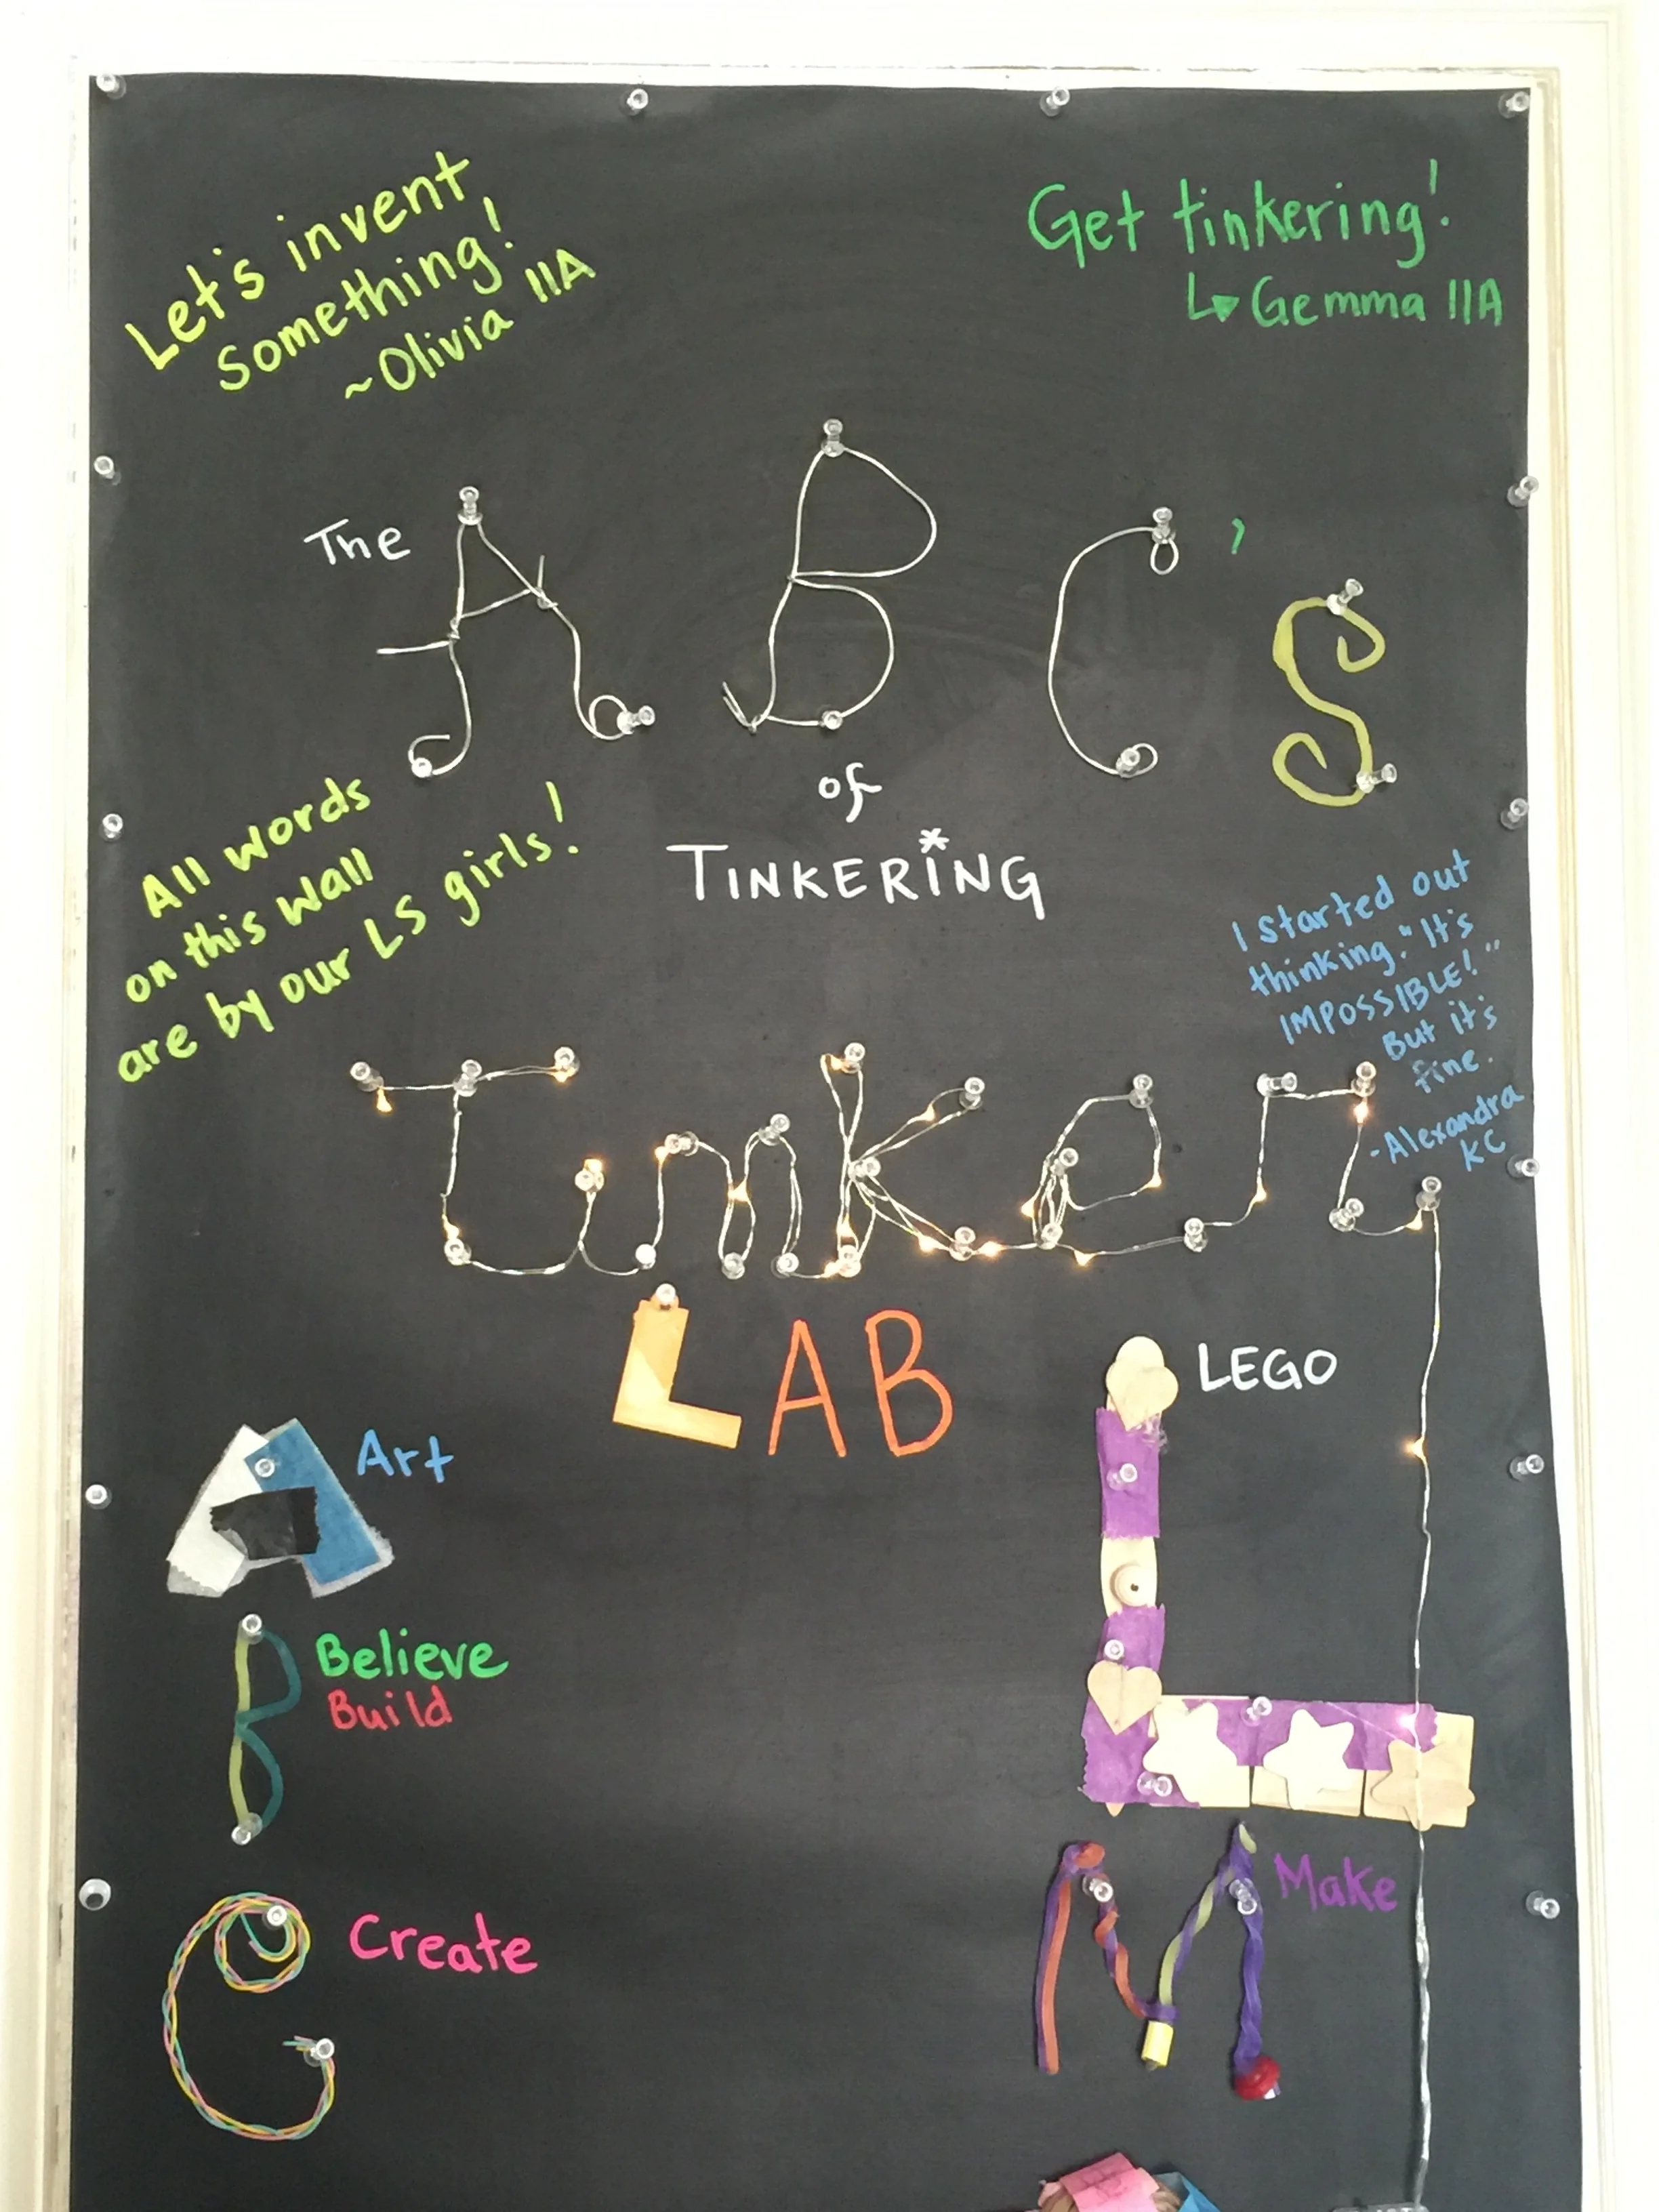 Let's invent
something!
~Olivia IIA
Get tinkering!
Gemma IIA
The A B C's
of
TINKERING
All words
on this wall
are by our LS girls!
I started out
thinking "It's
IMPOSSIBLE!"
But it's
fine.
-Alexandra
KC
Tinker
LAB
A Art
B Believe
Build
C Create
L LEGO
M Make